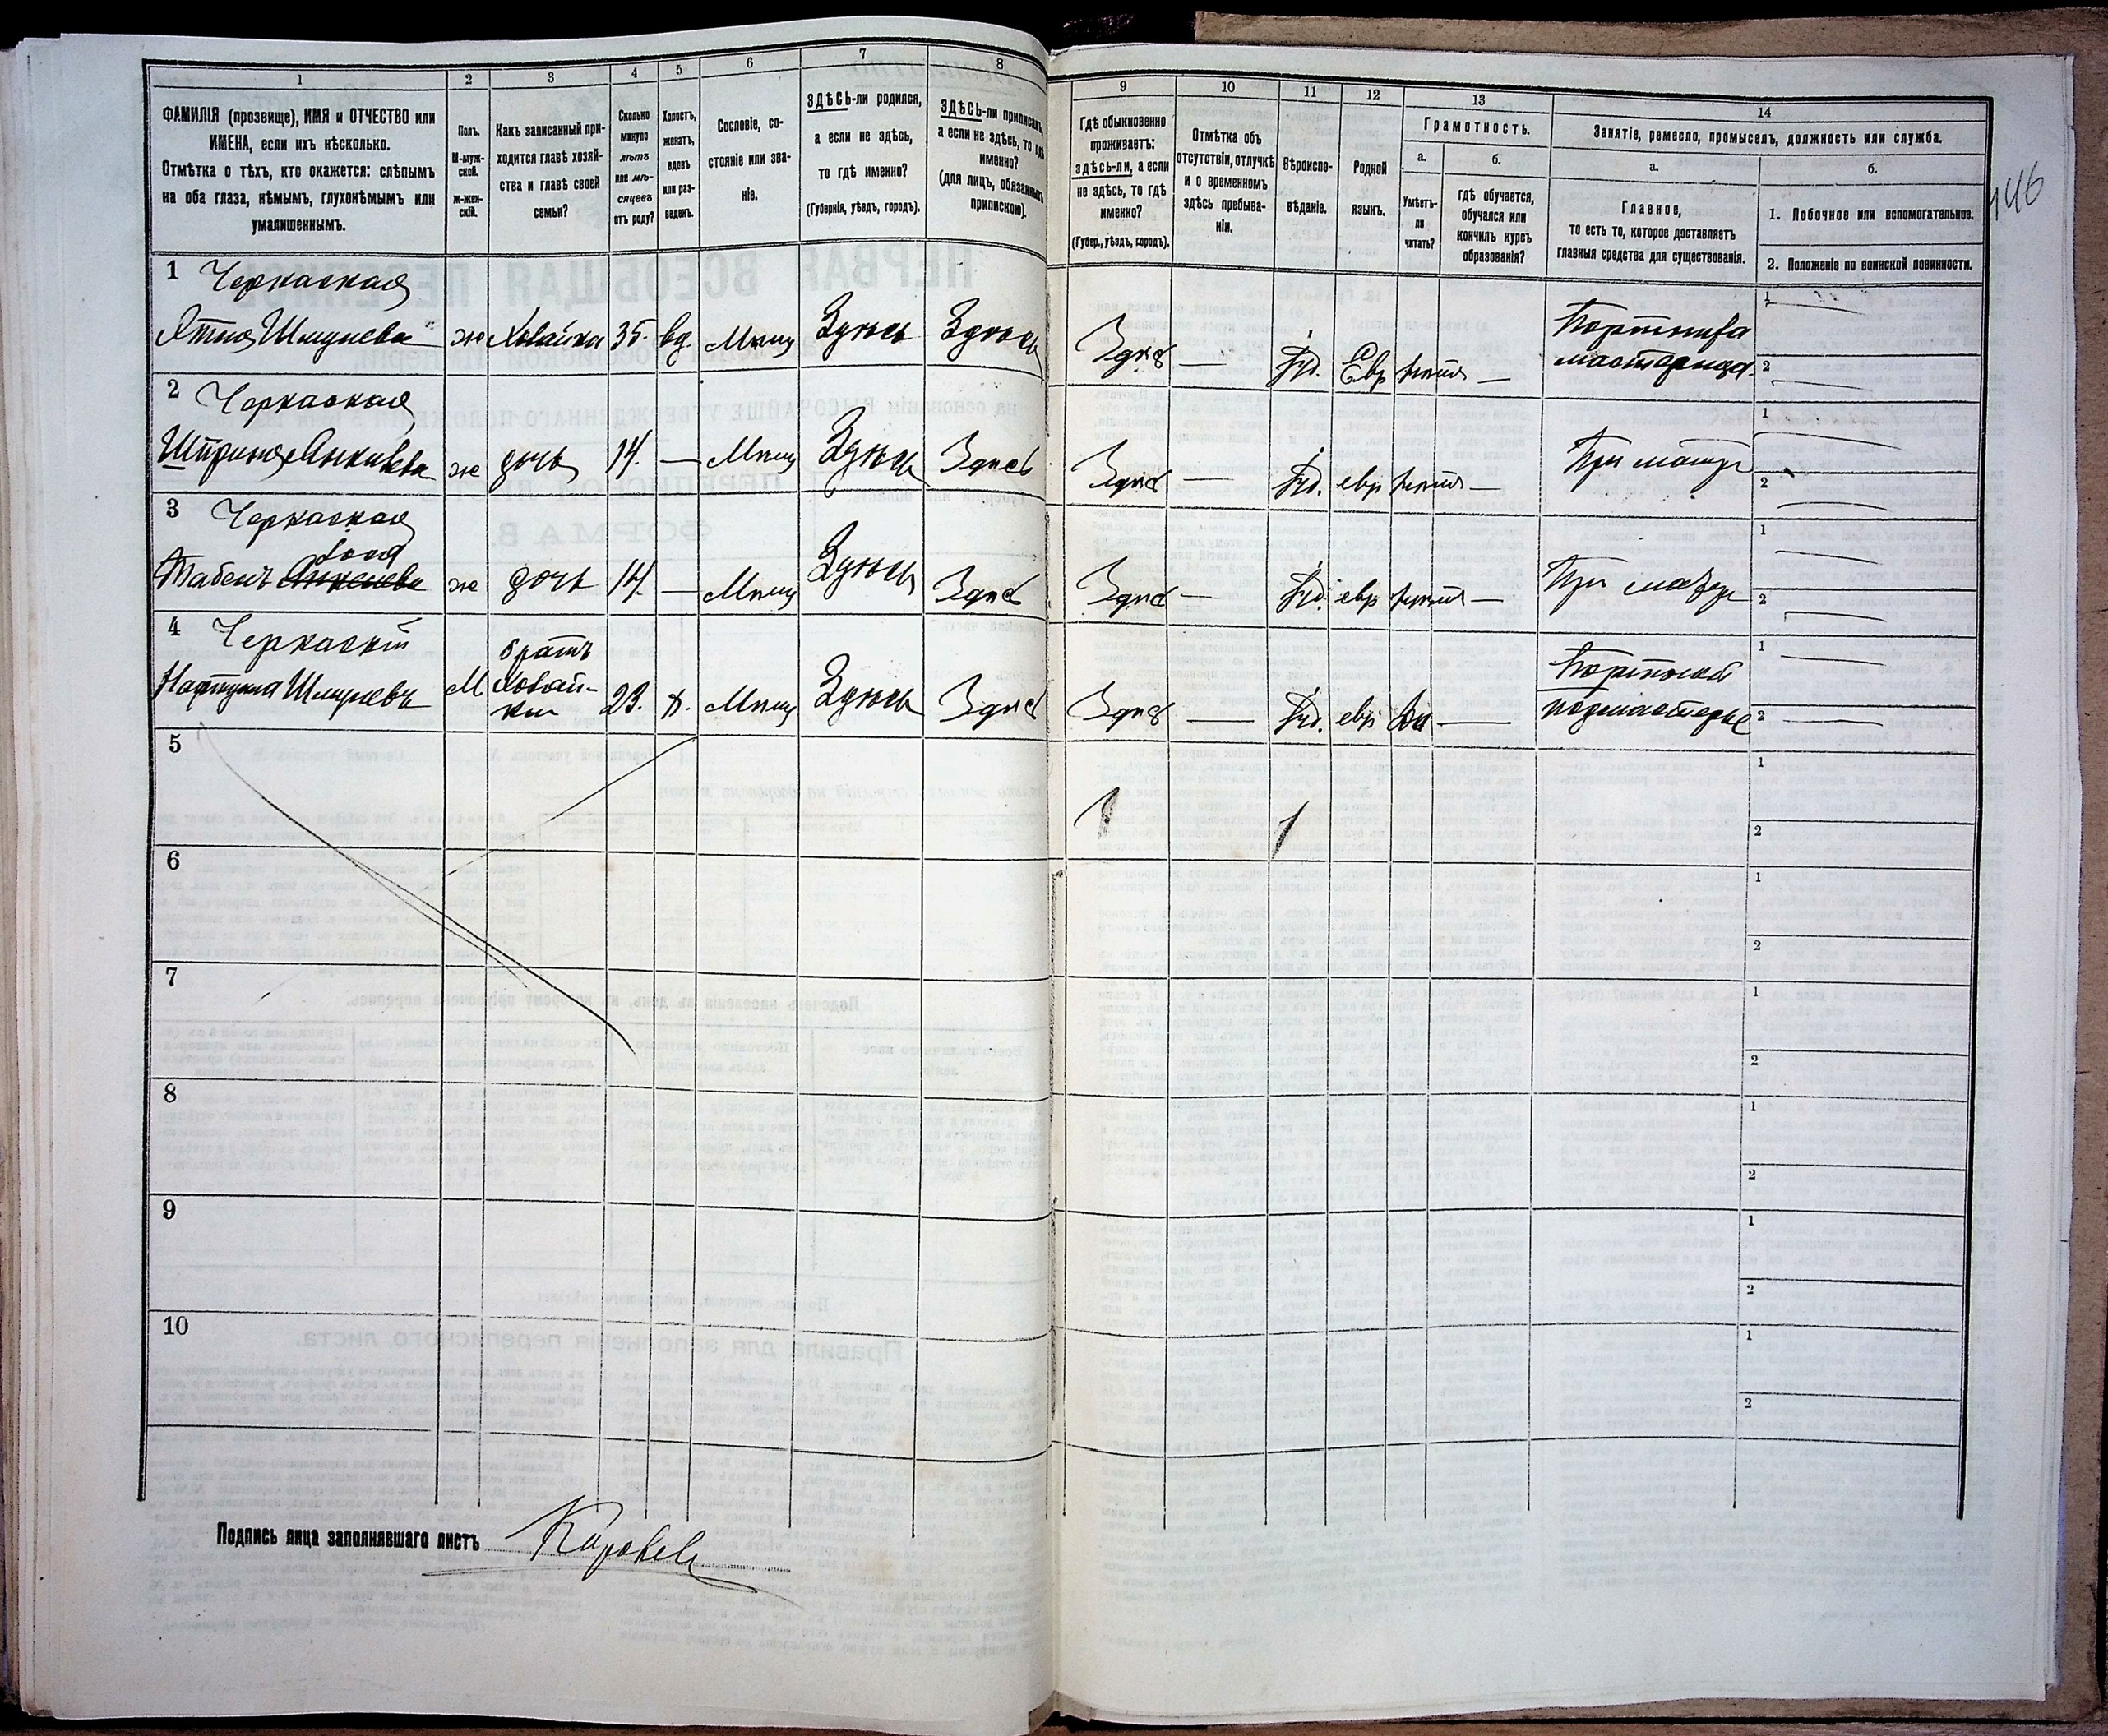 1
2
3
4
5
6
7
8
ФАМИЛІЯ (прозвище), ИМЯ и ОТЧЕСТВО или
ИМЕНА, если ихъ нѣсколько.
Отмѣтка о тѣхъ, кто окажется: слѣпымъ
на оба глаза, нѣмымъ, глухонѣмымъ или
умалишеннымъ.
Полъ.
М-муж-
ской.
ж-жен-
скій.
Какъ записанный при-
ходится главѣ хозяй-
ства и главѣ своей
семьи?
Сколько
минуло
лѣтъ
или мѣ-
сяцевъ
отъ роду?
Холостъ,
женатъ,
вдовъ
или раз-
веденъ.
Сословіе, со-
стояніе или зва-
ніе.
ЗДѢСЬ-ли родился,
а если не здѣсь,
то гдѣ именно?
(Губернія, уѣздъ, городъ).
ЗДѢСЬ-ли приписанъ,
а если не здѣсь, то гдѣ
именно?
(для лицъ, обязанныхъ
припискою).
1 Черкаская
Шмуйлева ж Хозяйка 35. вд. Мѣщ Здѣсь Здѣсь
2 Черкаская
ж дочь 14. — Мѣщ Здѣсь Здѣсь
3 Черкаская
ж дочь 14. — Мѣщ Здѣсь Здѣсь
4 Черкаскій
братъ
М хозяй-
ки 23. х. Мѣщ Здѣсь Здѣсь
5
6
7
8
9
10
Подпись лица заполнявшаго листъ
9
10
11
12
13
14
Гдѣ обыкновенно
проживаетъ:
здѣсь-ли, а если
не здѣсь, то гдѣ
именно?
(Губер., уѣздъ, городъ).
Отмѣтка объ
отсутствіи, отлучкѣ
и о временномъ
здѣсь пребыва-
ніи.
Вѣроиспо-
вѣданіе.
Родной
языкъ.
Грамотность.
а.
б.
Умѣетъ-
ли
читать?
Гдѣ обучается,
обучался или
кончилъ курсъ
образованія?
Занятіе, ремесло, промыселъ, должность или служба.
а.
б.
Главное,
то есть то, которое доставляетъ
главныя средства для существованія.
1. Побочное или вспомогательное.
2. Положеніе по воинской повинности.
146
Здѣсь — Іуд. Евр нѣтъ —
мастерица
1
2
Здѣсь — Іуд. евр нѣтъ — При матери
1
2
Здѣсь — Іуд. евр нѣтъ — При матери
1
2
Портной
Здѣсь — Іуд. евр Да — подмастерье
1
2
1
2
1
2
1
2
1
2
1
2
1
2